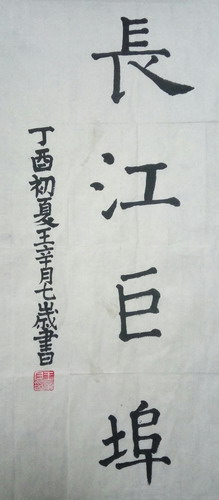 長江巨埠
丁酉初夏王辛月七歲書